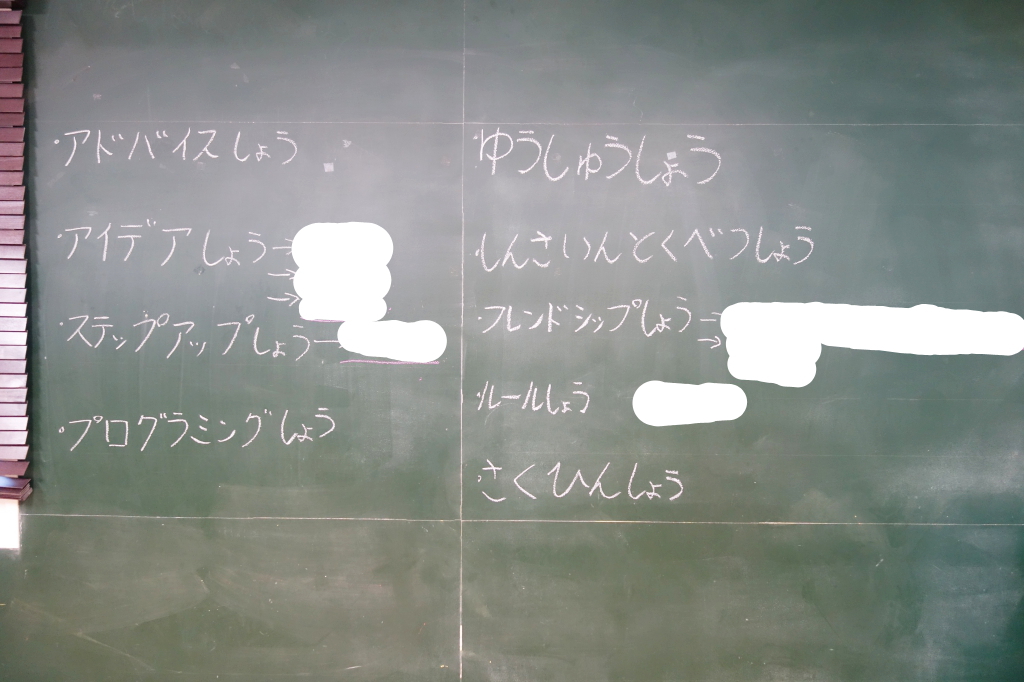 ・アドバイスしょう
・アイデアしょう→
→
→
・ステップアップしょう→
・プログラミングしょう
・ゆうしゅうしょう
・しんさいんとくべつしょう
・フレンドシップしょう→
→
・ルールしょう
・さくひんしょう